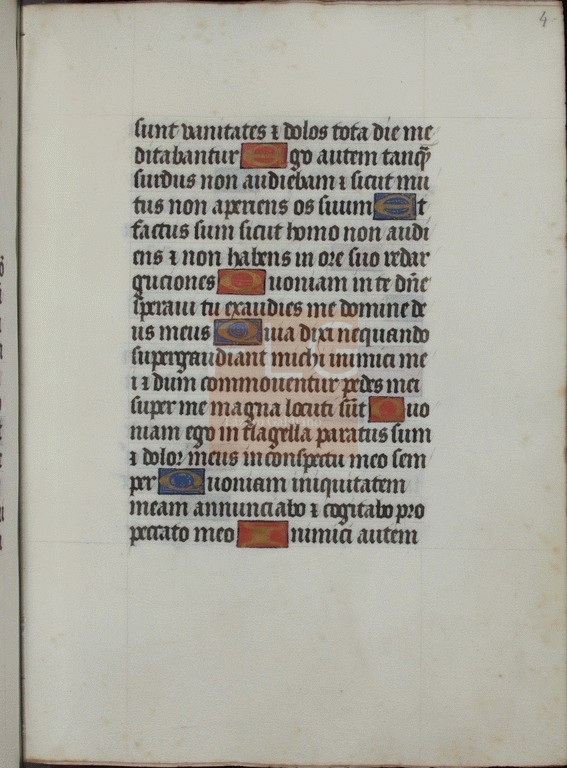 4
sunt vanitates ⁊ dolos tota die me
ditabantur Ego autem tanqȝ
surdus non audiebam ⁊ sicut mu
tus non aperiens os suum Et
factus sum sicut homo non audi
ens ⁊ non habens in ore suo redar
guciones Quoniam in te dñe
speraui tu exaudies me domine de
us meus Quia dixi nequando
supergaudiant michi inimici me
i ⁊ dum commouentur pedes mei
super me magna locuti sūt Quo
niam ego in flagella paratus sum
⁊ dolor meus in conspectu meo sem
per Quoniam iniquitatem
meam annunciabo ⁊ cogitabo pro
peccato meo Inimici autem